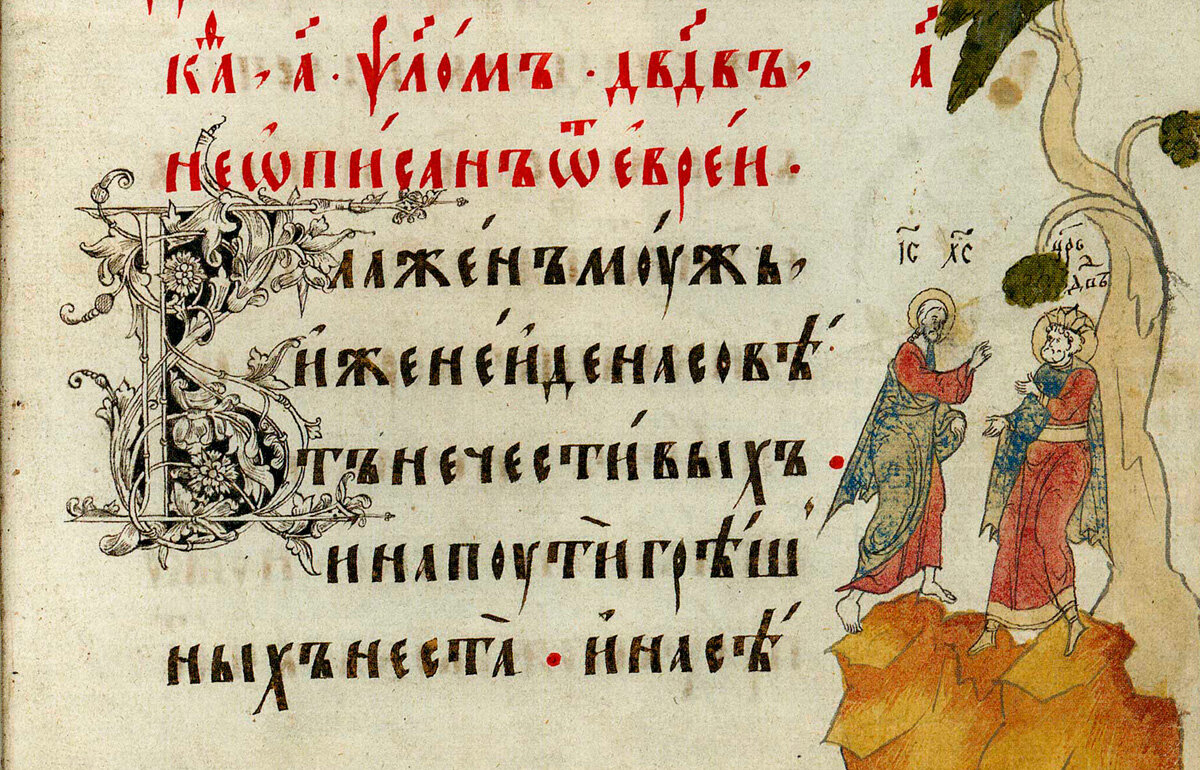 каⷴ҇, а҃ · ѱло́мъ · дв҃двъ, а҃
неѡпи́санъ ѿ е́вре́й ·
Блаже́нъ моу́жь,
и҆́же не и҆́де на совѣ́
тъ нечести́выхъ ·
и на поутѝ грѣ́ш
ныхъ не ста̀ · и҆ на сѣ́
І҃С Х҃С
цр҃ь
двъ